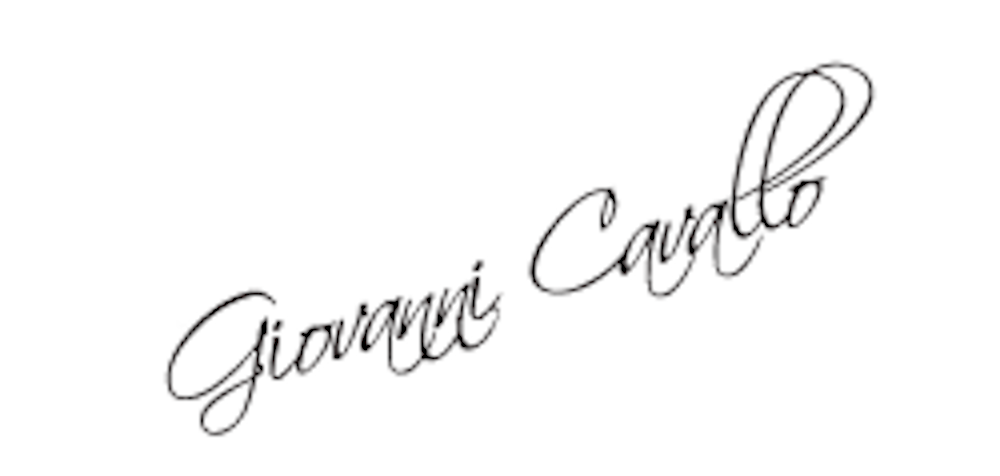 Giovanni Cavallo